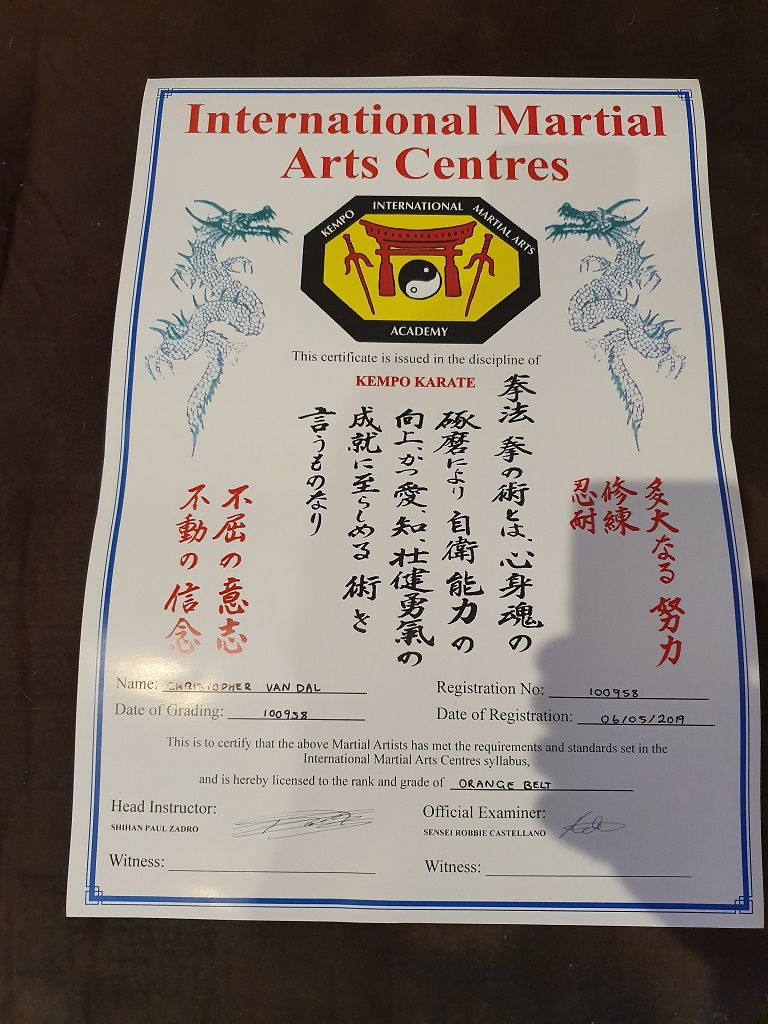 International Martial
Arts Centres
KEMPO INTERNATIONAL MARTIAL ARTS
ACADEMY
This certificate is issued in the discipline of
KEMPO KARATE
拳法 拳の術とは、心身魂の
琢磨により 自衛 能力の
向上、かつ愛、知、壮健勇氣の
成就に至らしめる 術を
言うものなり
多大なる 努力
修練
忍耐
不屈の意志
不動の信念
Name: CHRISTOPHER VAN DAL
Registration No: 100958
Date of Grading: 100958
Date of Registration: 06/05/2019
This is to certify that the above Martial Artists has met the requirements and standards set in the
International Martial Arts Centres syllabus,
and is hereby licensed to the rank and grade of ORANGE BELT
Head Instructor:
SHIHAN PAUL ZADRO
Official Examiner:
SENSEI ROBBIE CASTELLANO
Witness:
Witness: